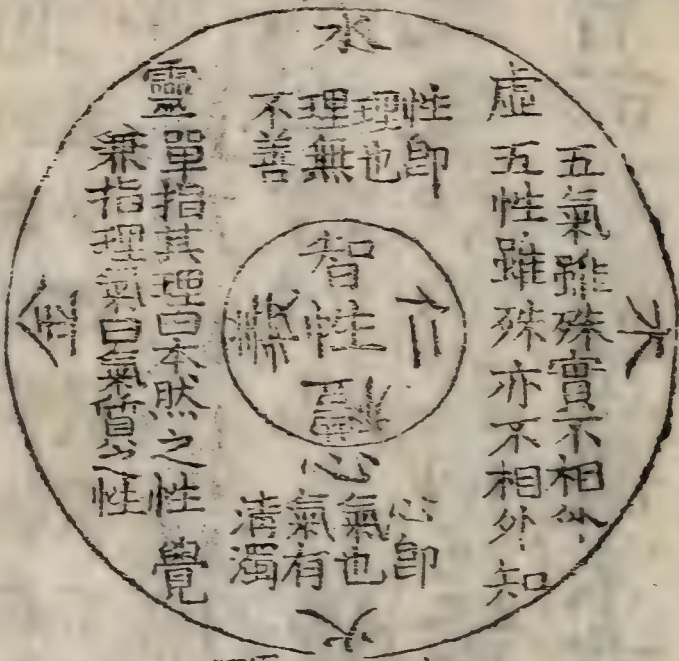 水
木
火
金
虛
五氣雖殊實不相外
五性雖殊亦不相外
知
性即
理也
理無
不善
仁
智
性
禮
義
心
心即
氣也
氣有
清濁
靈
單指其理曰本然之性
兼指理氣曰氣質之性
覺